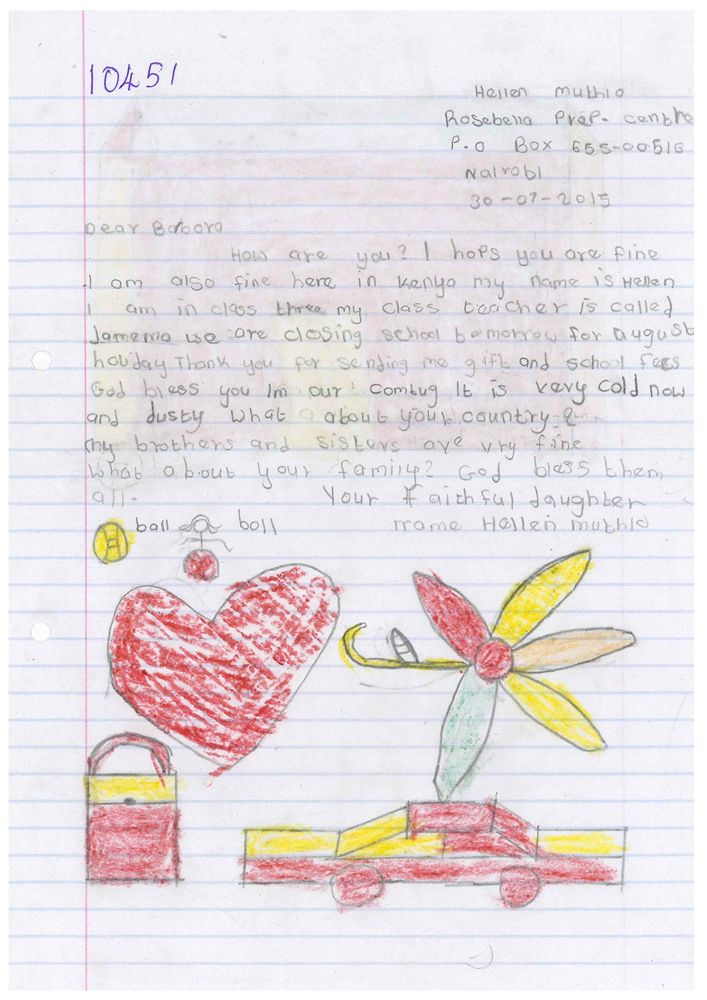 10451
Hellen muthio
Rosebella Prep. centre
P.o Box 655-00516
Nairobi
30-07-2015
Dear Barbara
How are you? I hops you are fine
I am also fine here in Kenya my name is Hellen
I am in class three my class teacher is called
Jamema we are closing school tomorrow for august
holiday Thank you for sending me gift and school fees
God bless you Im our It is very cold now
and dusty what about your country?
my brothers and sisters are vry fine
what about your family? God bless them
all. Your faithful daughter
ball boll name Hellen muthio